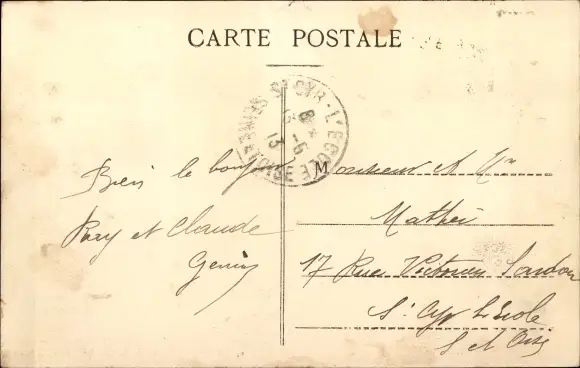 CARTE POSTALE
St CYR-L'ECOLE
SEINE-ET-OISE
8*
-6
13
Bien le bonjour
Rary et Claude
Monsieur et Mme
Mathei
17 Rue Victorien Sardou
St Cyr L'Ecole
S et Oise